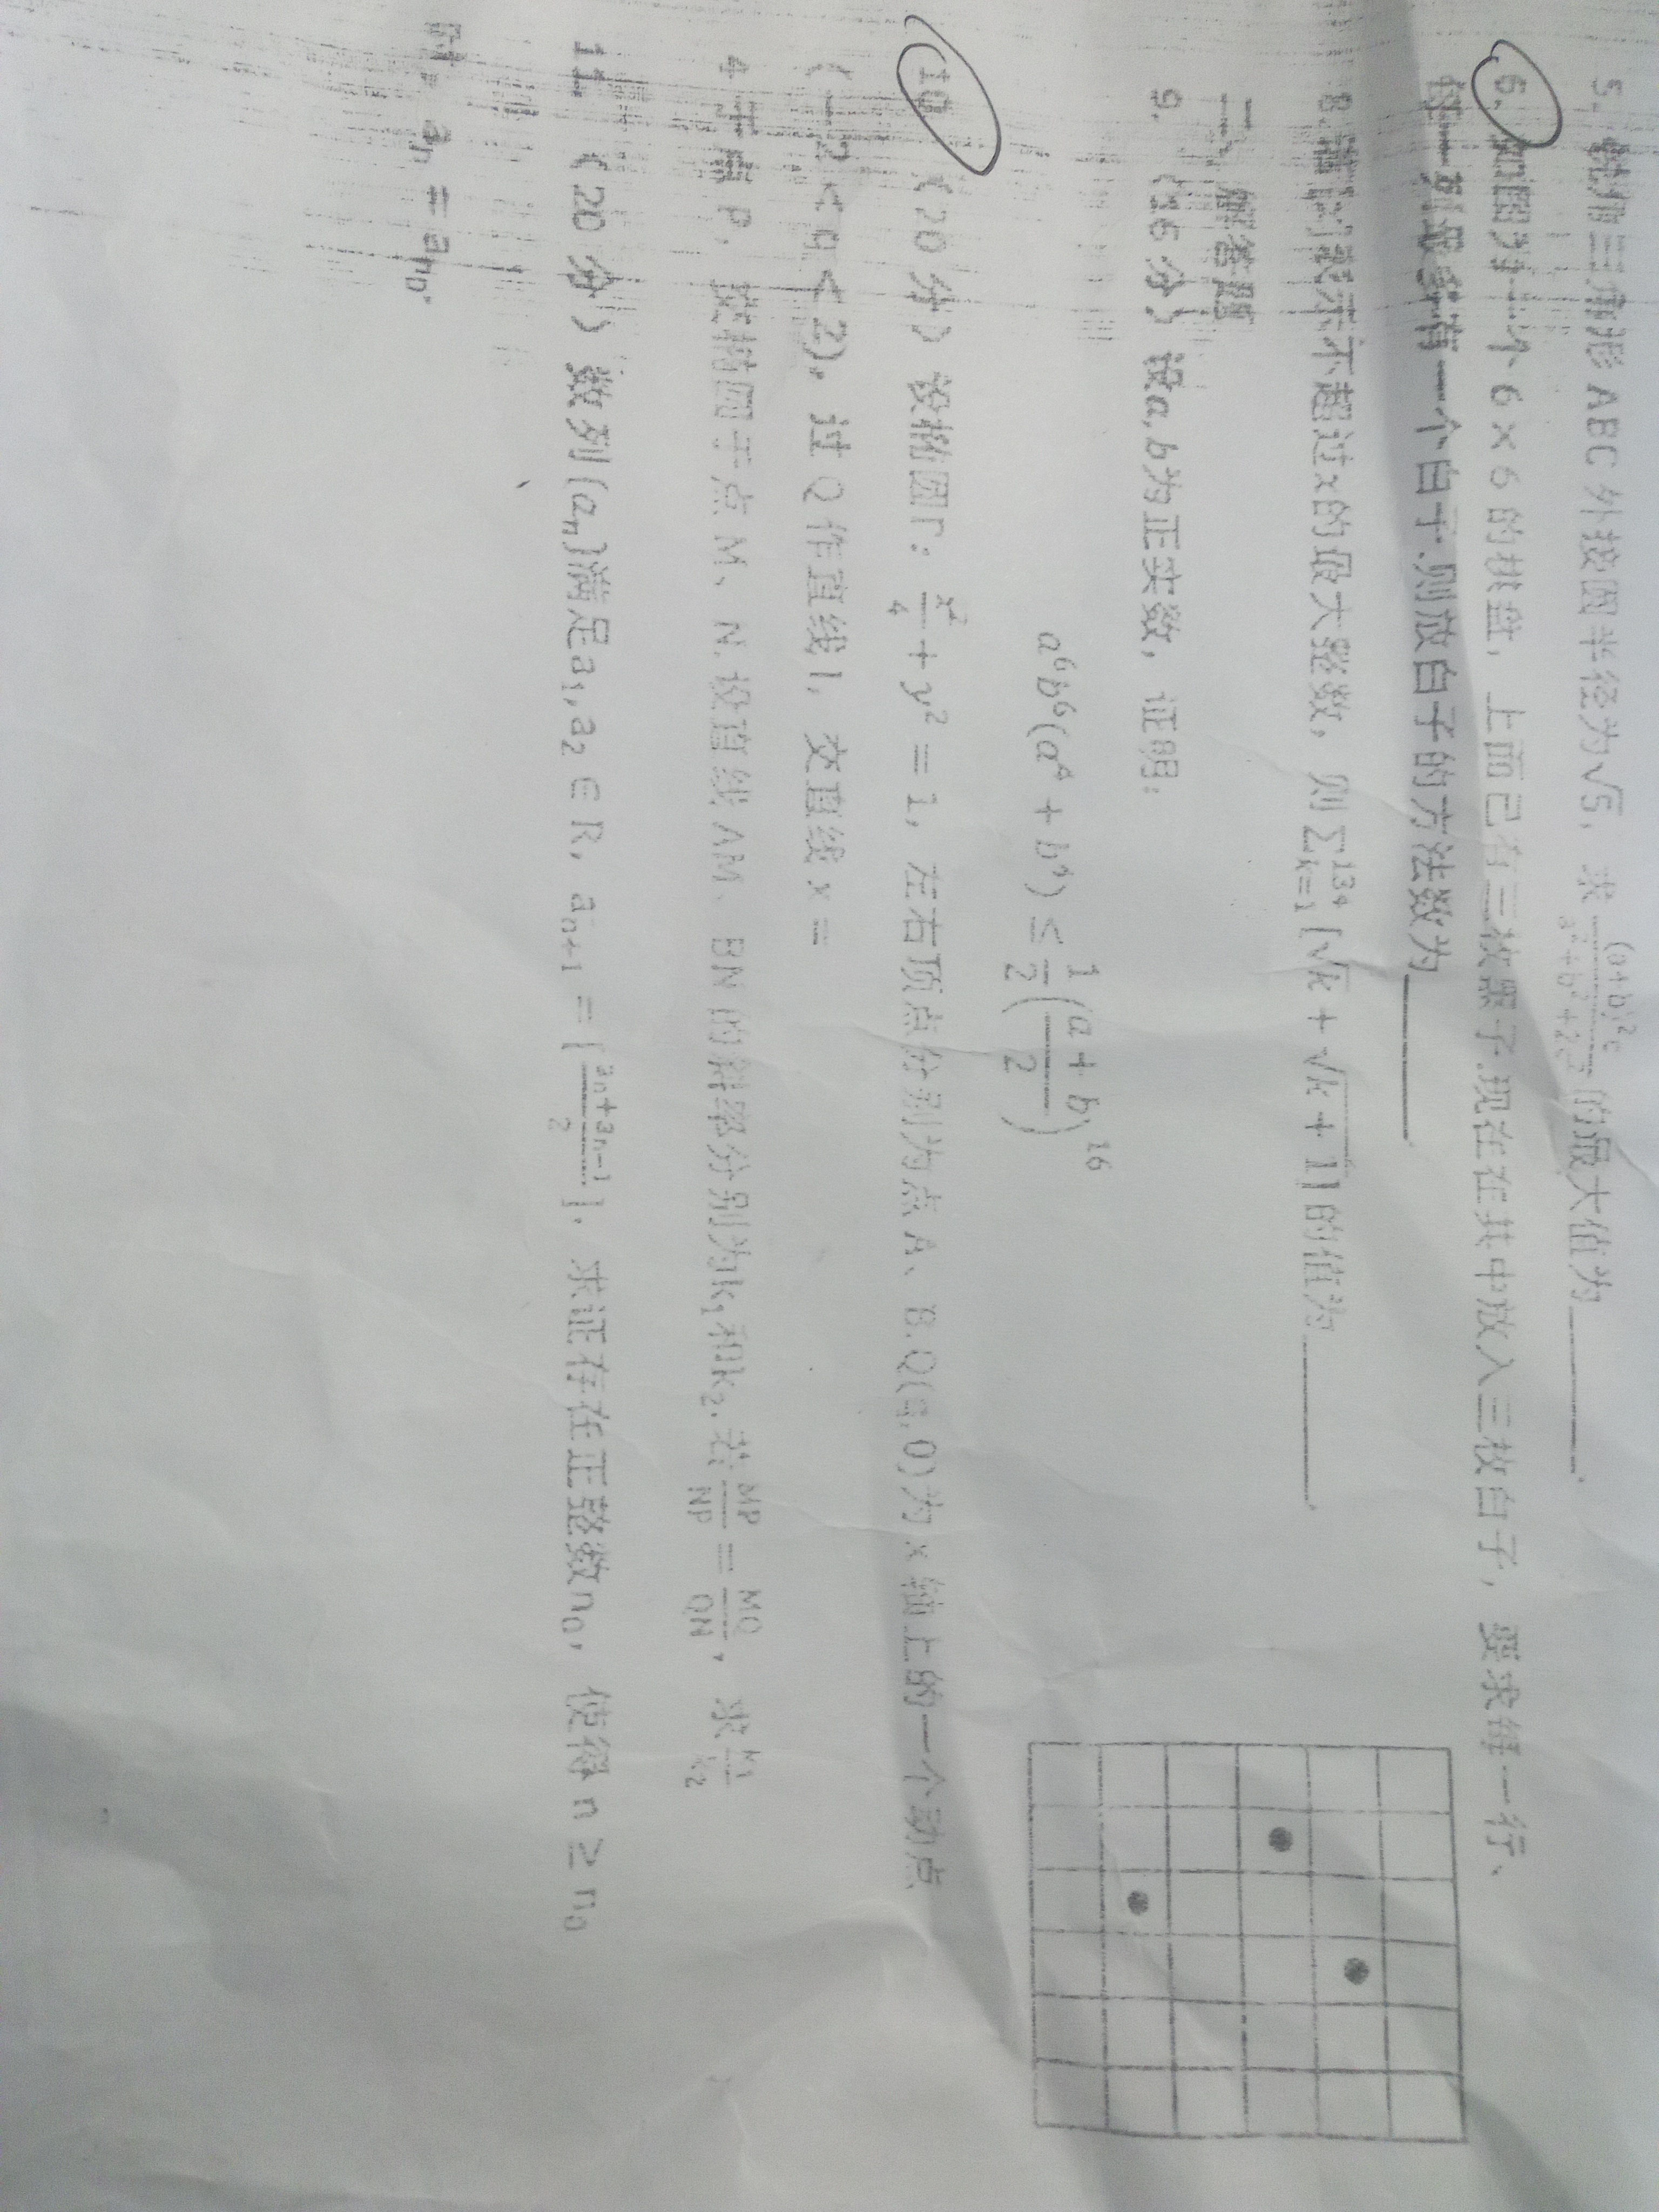 5. 锐角三角形 ABC 外接圆半径为√5, 求 (a+b)²c / a²+b²+2c² 的最大值为______.
6. 如图为一个 6×6 的棋盘, 上面已有三枚黑子.现在在其中放入三枚白子, 要求每一行、
每一列最多有一个白子.则放白子的方法数为______.
8. 不超过x的最大整数, 则∑ₖ₌₁¹³⁴[√k + √k+1]的值为______.
二、解答题
9. (16分) 设a,b为正实数, 证明:
a⁶b⁶(a⁴ + b⁴) ≤ 1/2 (a + b / 2)¹⁶
10. (20分) 设椭圆Γ: x²/4 + y² = 1, 左右顶点分别为点 A、B.Q(q,0)为 x 轴上的一个动点
(−2 < q < 2), 过 Q 作直线 l, 交直线 x =
4 于点 P, 交椭圆于点 M、N.设直线 AM、BN 的斜率分别为k₁和k₂.若 MP/NP = MQ/QN, 求 k₁/k₂
11. (20分) 数列{aₙ}满足a₁,a₂ ∈ R, aₙ₊₁ = [aₙ+aₙ₋₁ / 2]. 求证存在正整数n₀, 使得 n ≥ n₀
时, aₙ = aₙ₀.